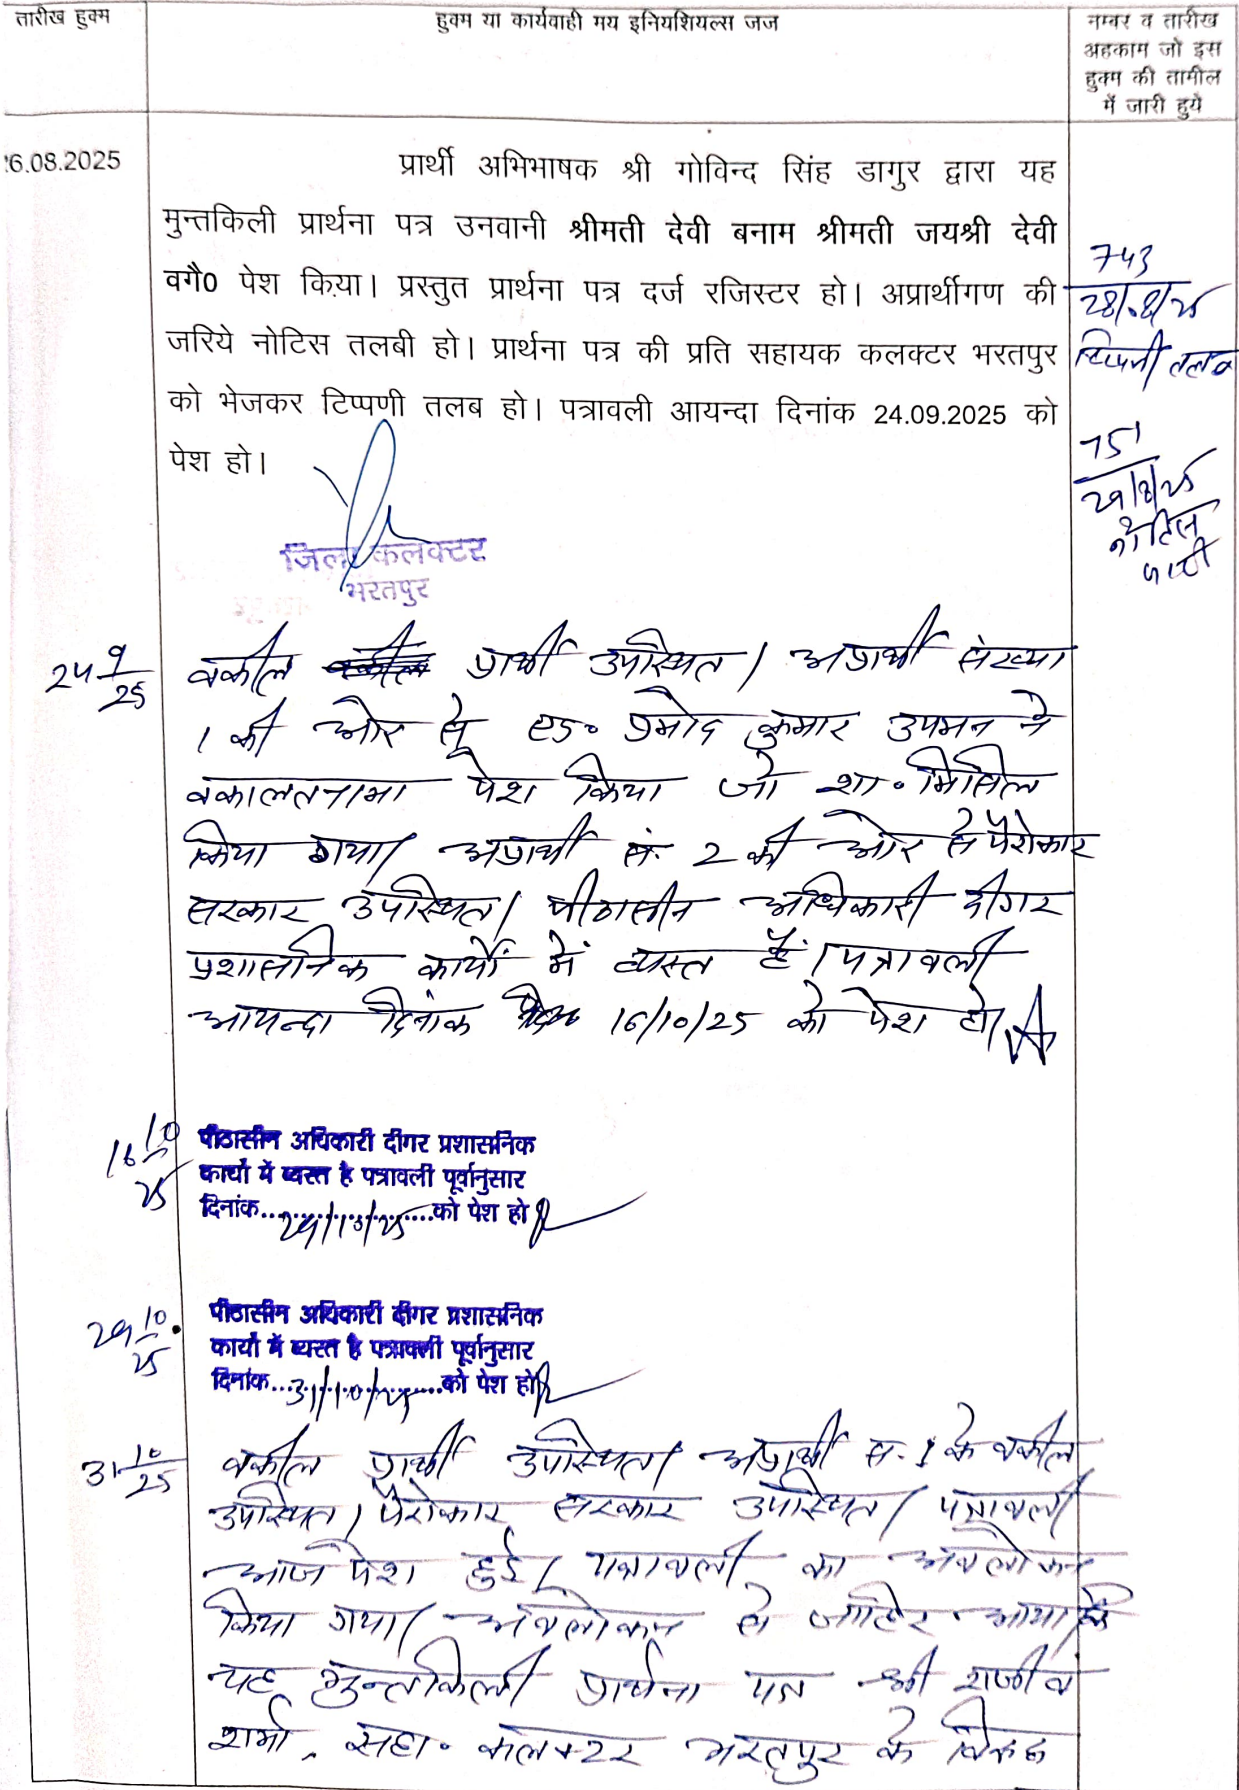 तारीख हुक्म
हुक्म या कार्यवाही मय इनियशियल्स जज
नम्बर व तारीख
अहकाम जो इस
हुक्म की तामील
में जारी हुये
26.08.2025
प्रार्थी अभिभाषक श्री गोविन्द सिंह डागुर द्वारा यह
मुन्तकिली प्रार्थना पत्र उनवानी श्रीमती देवी बनाम श्रीमती जयश्री देवी
वगै0 पेश किया। प्रस्तुत प्रार्थना पत्र दर्ज रजिस्टर हो। अप्रार्थीगण की
जरिये नोटिस तलबी हो। प्रार्थना पत्र की प्रति सहायक कलक्टर भरतपुर
को भेजकर टिप्पणी तलब हो। पत्रावली आयन्दा दिनांक 24.09.2025 को
पेश हो।
743
28/8/25
टिप्पणी तलब
751
29/8/25
नोटिस
जारी
जिला कलक्टर
भरतपुर
24 9/25
वकील प्रार्थी उपस्थित। अप्रार्थी संख्या
1 की ओर से एड० प्रमोद कुमार उपमन ने
वकालतनामा पेश किया जो शा० मिसिल
किया गया। अप्रार्थी सं. 2 की ओर से पैरोकार
सरकार उपस्थित। पीठासीन अधिकारी दीगर
प्रशासनिक कार्यों में व्यस्त हैं। पत्रावली
आयन्दा दिनांक 16/10/25 को पेश हो।
16 10/25
पीठासीन अधिकारी दीगर प्रशासनिक
कार्यो में व्यस्त है पत्रावली पूर्वानुसार
दिनांक 29/10/25 को पेश हो
29 10/25
पीठासीन अधिकारी दीगर प्रशासनिक
कार्यो में व्यस्त है पत्रावली पूर्वानुसार
दिनांक 31/10/25 को पेश हो
31 10/25
वकील प्रार्थी उपस्थित। अप्रार्थी स. 1 के वकील
उपस्थित। पैरोकार सरकार उपस्थित। पत्रावली
आज पेश हुई। पत्रावली का अवलोकन
किया गया। अवलोकन से जाहिर आया कि
यह मुन्तकिली प्रार्थना पत्र श्री राजीव
शर्मा, सहा० कलक्टर भरतपुर के विरुद्ध